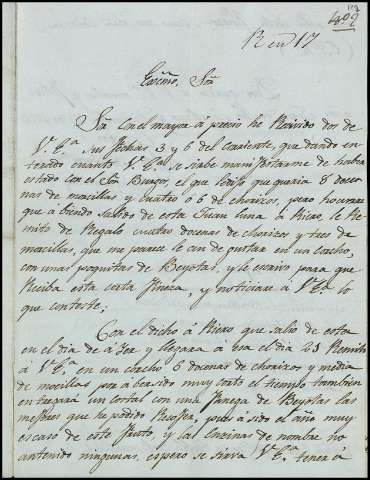 402
R en 17
Exc͂mo. Sõr
Sõr Con el mayor á precio he Recivido dos de
V.ª E.ª sus fechas 3 y 6 del Corriente, quedando en
terado cuanto V.ª E.ª se sirbe manifestarme de haber
estado con el Sõr Burgos, el que le dijo que queria 8 doce
nas de morcillas y cuatro ó 6 de chorizos, pero
que á biendo salido de esta Juan Luna á Riero, le Re
mito de Regalo cuatro docenas de chorizos y tres de
morcillas, que me parece le an de gustar en un Corcho,
con unas poquitas de Beyotas, y le escrivo para que
Reciba esta corta fineza, y noticiare á V.ª E.ª lo
que conteste;
Con el dicho á Riero que salio de esta
en el dia de á Yer y llegara á esa el dia 23 Remito
á V.ª E.ª en un Corcho 6 docenas de chorizos y media
de morcillas por á ber sido muy corto el tiempo tambien
entregará un costal con una fanega de Beyotas las
mejores que he podido Recoger, pues á sido el año muy
escaso de este fruto, y las Encinas de nombre no
antenido ningunas, espero se sirva V.ª E.ª tener á